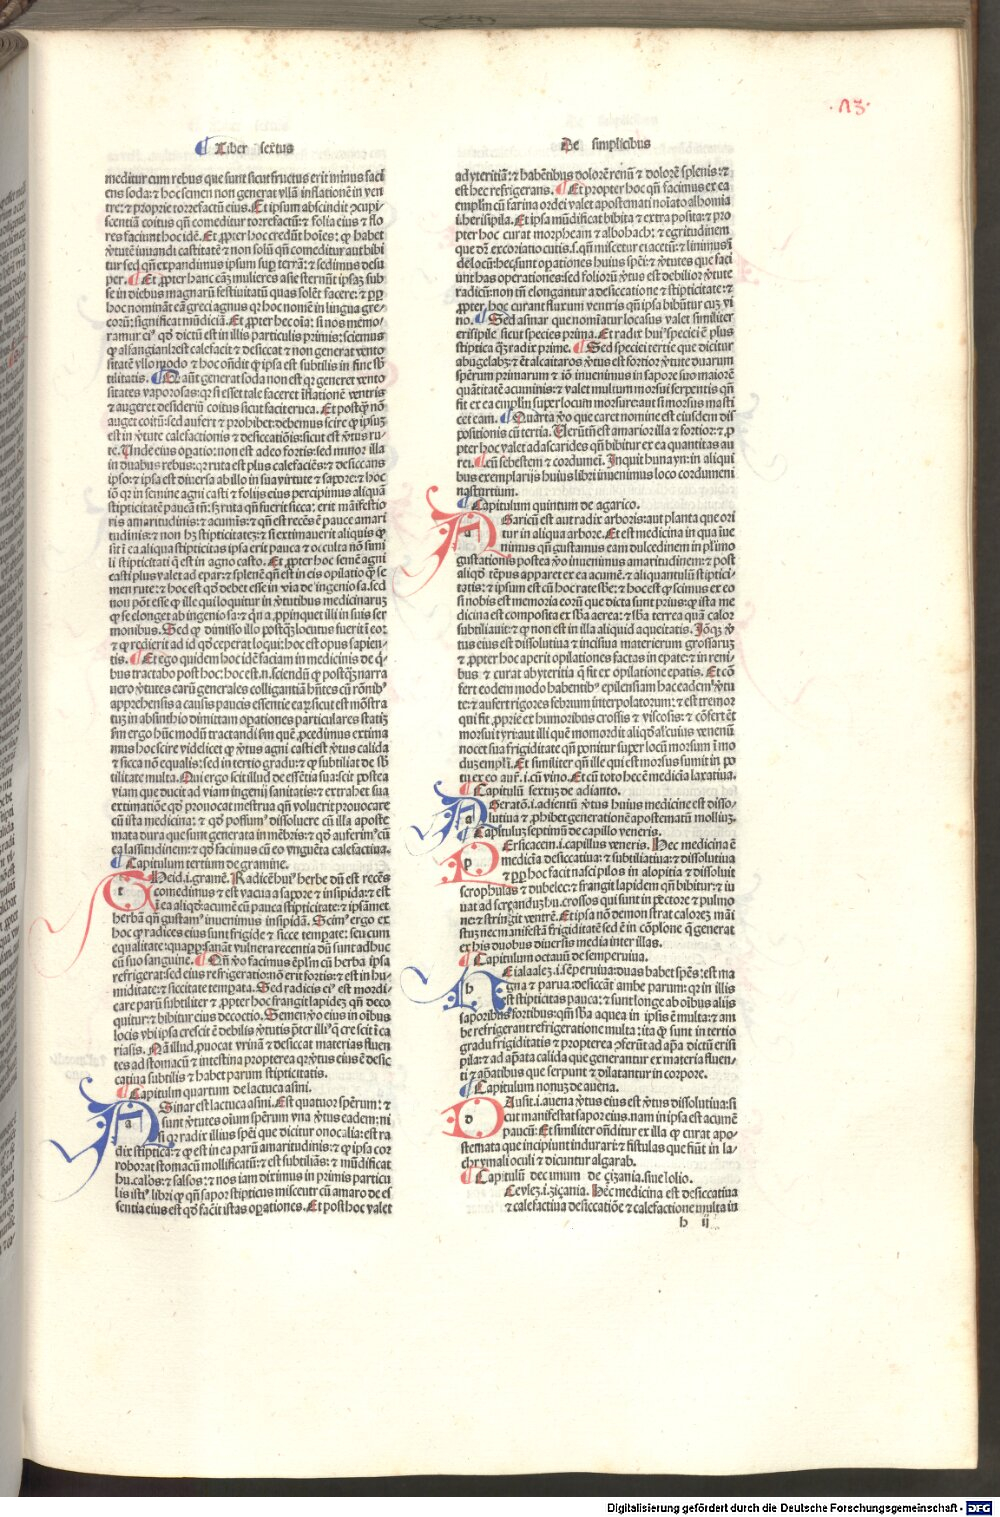 ·113·
Liber sextus
De simplicibus
meditur cum rebus que sunt sicut fructus erit minus faci
ens soda: ⁊ hoc semen non generat vllã inflationẽ in ven
tre: ⁊ proprie torrefactũ eius. Et ipsum abscindit ↄcupi⸗
scentiã coitus qñ comeditur torrefactũ: ⁊ folia eius ⁊ flo
res faciunt hoc idẽ. Et ꝓpter hoc credũt hoĩes: ꝙ habet
tur sed qñ expandimus ipsum suꝑ terrã: ⁊ sedimus desu
per. Et ꝓpter hanc cãȝ mulieres
se in diebus magnarũ festiuitatũ quas solẽt facere: ⁊ ꝓꝑ
hoc nominãt eã greci agnus qꝛ hoc nomẽ in lingua gre⸗
corũ: significat mũdiciã. Et ꝓpter hec oĩa: si nos memo⸗
ramur eiꝰ qd̃ dictũ est in illis particulis primis: sciemus
ꝙ alfangianhrest calefacit ⁊ desiccat ⁊ non generat vento
sitatẽ yllo modo ⁊ hoc oñdit ꝙ ipsa est subtilis in fine sb̃
tilitatis. aũt generat soda non est qꝛ generet vento
sitates vaporosas: qꝛ si esset tale faceret ĩflationẽ ventris
⁊ augeret desideriũ coitus sicut facit eruca. Et postꝙ̃ nõ
auget coitũ: sed aufert ⁊ prohibet: debemus scire ꝙ ipsius
est in ṽtute calefactionis ⁊ desiccatiõis: sicut est ṽtus ru⸗
te. Unde eius oꝑatio: non est adeo fortis: sed minor illa
in duabus rebus: qꝛ ruta est plus calefaciẽs: ⁊ desiccans
ipso: ⁊ ipsa est diuersa ab illo in sua virtute ⁊ sapore: ⁊ hoc
iõ qꝛ in semine agni casti ⁊ foliis eius percipimus aliquã
stipticitatẽ paucã tñ: sȝ ruta qñ fuerit sicca: erit mãifestio
ris amaritudinis: ⁊ acumĩs: ⁊ qñ est recẽs ẽ pauce amari
tudinis: ⁊ non hȝ stipticitatẽȝ: ⁊ si extimauerit aliquis ꝙ
sit ĩ ea aliqua stipticitas ipsa erit pauca ⁊ occulta nõ simi
li stipticitati q̃ est in agno casto. Et ꝓpter hoc semẽ agni
casti plus valet ad epar: ⁊ splenẽ qñ est in eis opilatio ꝙ̃ se
men rute: ⁊ hoc est qd̃ debet esse in via de ingenio sa. sed
non põt esse ꝙ ille qui loquitur in ṽtutibus medicinaruȝ
ꝙ se elonget ab ingenio sa: ⁊ qñ a ꝓpinquet illi in suis ser
monibus. Sed ꝙ dimisso illo postꝙ̃ locutus fuerit ĩ eoꝛ
⁊ ꝙ redierit ad id qd̃ ceperat loqui: hoc est opus sapien⸗
tis. Et ego quidem hoc idẽ faciam in medicinis de q̃⸗
bus tractabo post hoc: hoc est .n. sciendũ ꝙ postꝙ̃ narra
uero ṽtutes earũ generales colligantiã hñtes cũ rõnibꝰ
apprehensis a causis paucis essentie earꝝ sicut est mõstra
tuȝ in absinthio dimittam oꝑationes particulares statiȝ
sm̃ ergo hũc modũ tractandi sm̃ quẽ ꝓcedimus extima
mus hoc scire videlicet ꝙ ṽtus agni casti est ṽtus calida
⁊ sicca nõ equalis: sed in tertio gradu: ⁊ ꝙ subtiliat de sb̃
tilitate multa. Qui ergo scit illud de essẽtia sua: scit postea
viam que ducit ad viam ingenii sanitatis: ⁊ extrahet sua
extimatiõe qd̃ prouocat mestrua qñ voluerit prouocare
cũ ista medicina: ⁊ qd̃ possimꝰ dissoluere cũ illa aposte
mata dura que sunt generata in mẽbris: ⁊ qd̃ auferimꝰ cũ
ea lassitudinem: ⁊ qd̃ facimus cũ eo vnguẽta calefactiua.
Capitulum tertium de gramine.
Theid .i. gramẽ. Radices huiꝰ herbe dũ est recẽs
comedimus ⁊ est vacua a sapore ⁊ insipida: ⁊ est
ĩ ea aliqd̃: acumẽ cũ pauca stipticitate: ⁊ ipsãmet
herbã qñ gustamꝰ inuenimus insipidã. Scimꝰ ergo ex
hoc ꝙ radices eius sunt frigide ⁊ sicce tempate: seu cum
equalitate: quapꝓ sanãt vulnera recentia dũ sunt adhuc
cũ suo sanguine. Qñ ṽo facimus ẽpl̃m cũ herba ipsa
refrigerat: sed eius refrigeratio: nõ erit fortis: ⁊ est in hu⸗
miditate: ⁊ siccitate temꝑata. Sed radicis eiꝰ est mordi⸗
care parũ subtiliter ⁊ ꝓpter hoc frangit lapideȝ qñ deco
quitur: ⁊ bibitur eius decoctio. Semen ṽo eius in oĩbus
locis vbi ipsa crescit ẽ debilis ṽtutis p̃ter illiꝰ q̃ crescit ĩ ca
riasis. Nã illud, puocat vrinã ⁊ desiccat materias fluen
tes ad stomacũ ⁊ intestina propterea qꝛ ṽtus eius ẽ desic
catiua subtilis ⁊ habet parum stipticitatis.
Capitulm quartum de lactuca asini.
Asinar est lactuca asini. Est quatuor spẽrum: ⁊
sunt ṽtutes oĩum spẽrum vna ṽtus eadem: ni
si qꝛ radix illius spẽi que dicitur onocalia: est ra
dix stiptica: ⁊ ꝙ est in ea parũ amaritudinis: ⁊ ꝙ ipsa cor
roborat stomacũ mollificatũ: ⁊ est subtiliãs: ⁊ mũdificat
hu. calos: ⁊ salsos: ⁊ nos iam diximus in primis particu
lis istiꝰ libri ꝙ qñ sapor stipticus miscetur cũ amaro de es
sentia eius est qd̃ faciit istas oꝑationes. Et post hoc valet
ad yteritiã: ⁊ habẽtibus dolorẽ renũ ⁊ dolorẽ splenis: ⁊
est hec refrigerans. Et propter hoc qñ facimus ex ea
emplm̃ cũ farina ordei valet apostemati noĩato alhomia
.i. herisipila. Et ipsa mũdificat bibita ⁊ extra posita: ⁊ pro
pter hoc curat morpheam ⁊ albohach: ⁊ egritudinem
que dr̃ excoriatio cutis. s. qñ miscetur ei acetũ: ⁊ linimus ĩ
de locũ: hec sunt oꝑationes huius spẽi: ⁊ ṽtutes que faci
unt has operationes: sed foliorũ ṽtus est debilior ṽtute
radicũ: non tñ elongantur a desiccatione ⁊ stipticitate: ⁊
ꝓpter hoc curant fluxum ventris qñ ipsa bibũtur cuȝ vi
no. Sed asinar que nomĩatur locasus valet similiter
erisipile sicut species prima. Et radix huiꝰ speciei ẽ plus
stiptica q̃ȝ radix prime. Sed speciei tertie que dicitur
abugelabȝ: ⁊ ẽt alcaitaros ṽtus est fortior ṽtute duarum
spẽrum primarum ⁊ iõ inuenimus in sapore suo maiorẽ
quãtitatẽ acuminis: ⁊ valet multum morsui serpentis qñ
fit ex ea emplm̃ super locum morsure: aut si morsus masti
cet eam. Quarta ṽo que caret nomine est eiusdem dis
positionis cũ tertia. Uerũtñ est amarior illa ⁊ fortior: ⁊ ꝓ
pter hoc valet ad ascarides qñ bibitur ex ea quantitas au
rei. .i. cũ sebestem ⁊ cordumeĩ. Inquit hunayn: in aliqui
bus exemplariĩs huius libri inuenimus loco cordumeni
nasturtium.
Capitulum quintum de agarico.
AGaricũ est aut radix arboris: aut planta que ori
tur in aliqua arbore. Et est medicina in qua ĩue
nimus qñ gustamus eam dulcedinem in pl̃imo
gustationis postea ṽo inuenimus amaritudinem: ⁊ post
aliqd̃ tẽpus apparet ex ea acumẽ. ⁊ aliquantulũ stiptici⸗
tatis: ⁊ ipsum est cũ hoc rate sb̃e: ⁊ hoc est ꝙ scimus ex eo
si nobis est memoria eorũ que dicta sunt prius: ꝙ ista me
dicina est composita ex sb̃a aerea: ⁊ sb̃a terrea quã calor
subtiliauit: ⁊ ꝙ non est in illa aliquid aqueitatis. Iõqȝ ṽ
tus eius est dissolutiua ⁊ incisiua materierum grossarũȝ
⁊ ꝓpter hoc aperit opilationes factas in epate: ⁊ in reni⸗
bus ⁊ curat abyteritia q̃ fit ex opilatione epatis. Et cõ
fert eodem modo habentibꝰ epilensiam hac eademꝰ ṽtu
te: ⁊ aufert rigores febrium interpolatorum: ⁊ est tremor
qui fit ꝓprie ex humoribus crossis ⁊ viscosis: ⁊ cõfert ẽt
morsui tyri: aut illi quẽ momordit aliqd̃ alcuius venenũ
nocet sua frigiditate qñ ponitur super locũ morsum ĩ mo
duȝ empl̃i. Et similiter qñ ille qui est morsus sumit in po
tu ex eo aur̃. i. cũ vino. Et cũ toto hoc ẽ medicĩa laxatiua.
Capitulũ sextuȝ de adianto.
ASeratõ. i. adientũ ṽtus huius medicine est disso⸗
lutiua ⁊ ꝓhibet generationẽ apostematũ molliuȝ.
Capituluȝ septimũ de capillo veneris.
PErsicacem. i. capillus veneris. Hec medicina ẽ
medicĩa desiccatiua: ⁊ subtiliatiua: ⁊ dissolutiua
⁊ ꝓꝑ hoc facit nasci pilos in alopitia ⁊ dissoluit
scrophulas ⁊ dubelec: ⁊ frangit lapidem qñ bibitur: ⁊ iu
uat ad screandũ hu. crossos qui sunt in pectore ⁊ pulmo
ne: ⁊ stringit ventrẽ. Et ipsa nõ demonstrat caloreȝ mãi
stuȝ nec manifestã frigiditatẽ sed ẽ in cõplone q̃ generat
ex his duobus diuersis media inter illas.
Capitulum octauũ de semperuiua.
HEialaaleȝ .i. sẽperuiua: duas habet spẽs: est ma
gna ⁊ parua. desiccãt ambe parum: qꝛ in illis
est stipticitas pauca: ⁊ sunt longe ab oĩbus aliis
saporibus fortibus: qm̃ sb̃a aquea in ipsis ẽ multa: ⁊ am
be refrigerant refrigeratione multa: ita ꝙ sunt in tertio
gradu frigiditatis ⁊ propterea ↄferũt ad aꝑa dictũ erisi
pila: ⁊ ad aꝑata calida que generantur ex materia fluen⸗
ti ⁊ aꝑatibus que serpunt ⁊ dilatantur in corpore.
Capitulum nonuȝ de auena.
DAusir. i. auena ṽtus eius est ṽtus dissolutiua: si
cut manifestat sapor eius. nam in ipsa est acumẽ
paucũ: Et similiter oñditur ex illa ꝙ curat apo⸗
stemata que incipiunt indurari: ⁊ fistulas que fiũt in la⸗
chrymali oculi ⁊ dicuntur algarab.
Capitulũ decimum de çiȝania. siue lolio.
Ceyleȝ .i. ȝiçania. Hec medicina est desiccatiua
⁊ calefactiua desiccatiõe ⁊ calefactione multa in
h ij
Digitalisierung gefördert durch die Deutsche Forschungsgemeinschaft - DFG